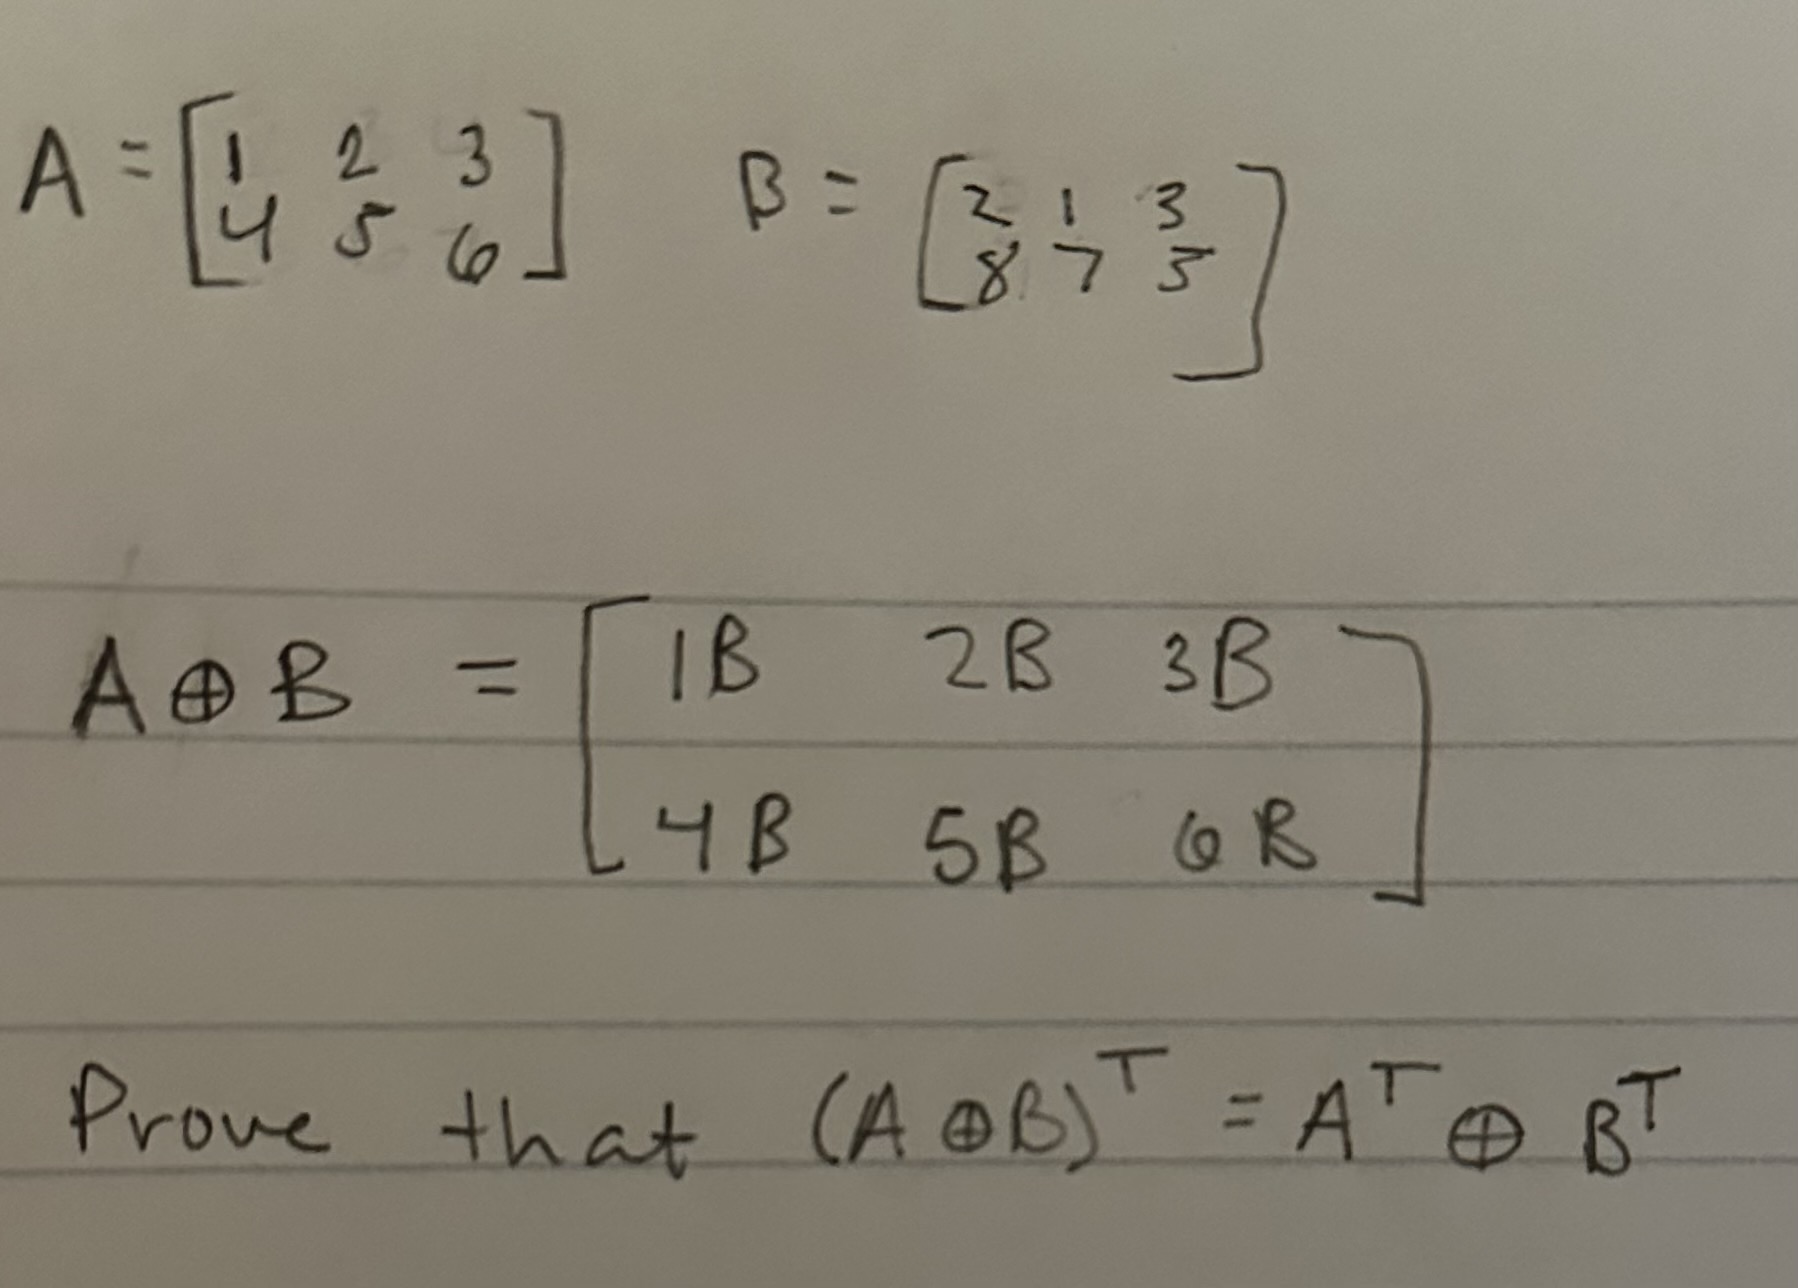 A = [1 2 3   B = [2 1 3
4 5 6]   8 7 5]
A ⊕ B = [1B 2B 3B
4B 5B 6B]
Prove that (A ⊕ B)ᵀ = Aᵀ ⊕ Bᵀ